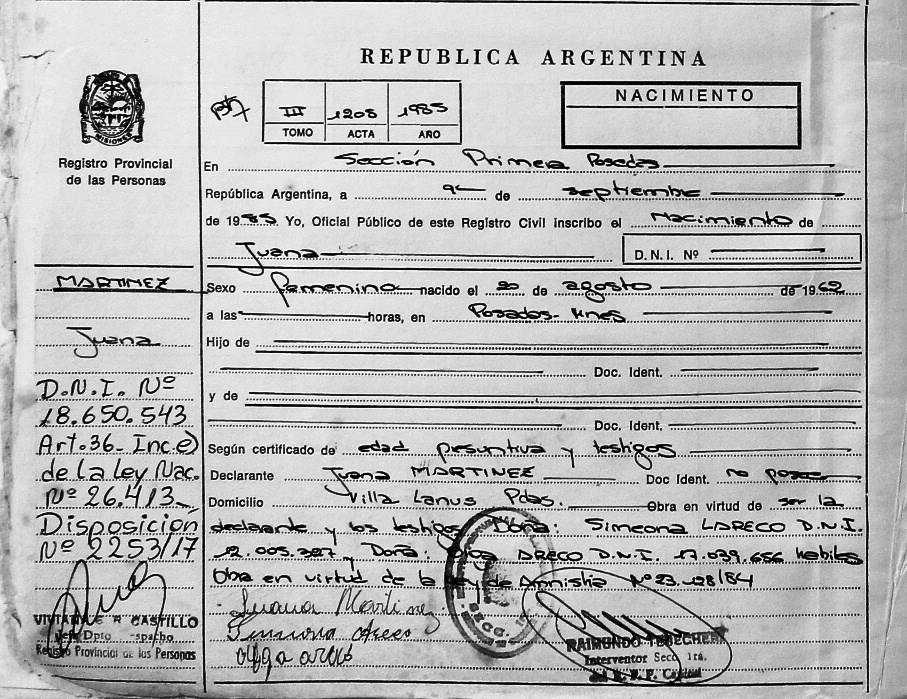 REPUBLICA ARGENTINA
MISIONES
Registro Provincial
de las Personas
III 1208 1985
TOMO ACTA AÑO
NACIMIENTO
En Sección Primera Posadas
República Argentina, a 9 de septiembre
de 1985 Yo, Oficial Público de este Registro Civil inscribo el Nacimiento de
Juana D.N.I. Nº
MARTINEZ
Juana
D.N.I. Nº
18.650.543
Art.36- Inc.e)
de la Ley Nac.
Nº 26.413-
Disposición
Nº 2253/17
VIVIANA R CASTILLO
Jefe Dpto spacho
Registro Provincial de las Personas
Sexo femenino nacido el 20 de agosto de 1962
a las horas, en Posadas- Mnes
Hijo de
Doc. Ident.
y de
Doc. Ident.
Según certificado de edad presuntiva y testigos
Declarante Juana MARTINEZ Doc Ident. no posee
Domicilio Villa Lanus Pdas. Obra en virtud de ser la
declarante y los testigos Doña: Simeona LARECO D.N.I.
12.005.327 y Doña: Olga ARECO D.N.I. 17.039.656 habiles
Obra en virtud de la ley de Amnistia Nº 23.128/84
Juana Martinez
Simeona Areco
Olga areco
RAIMUNDO
Interventor Secc. 1ra.
del R. P. P. Capital